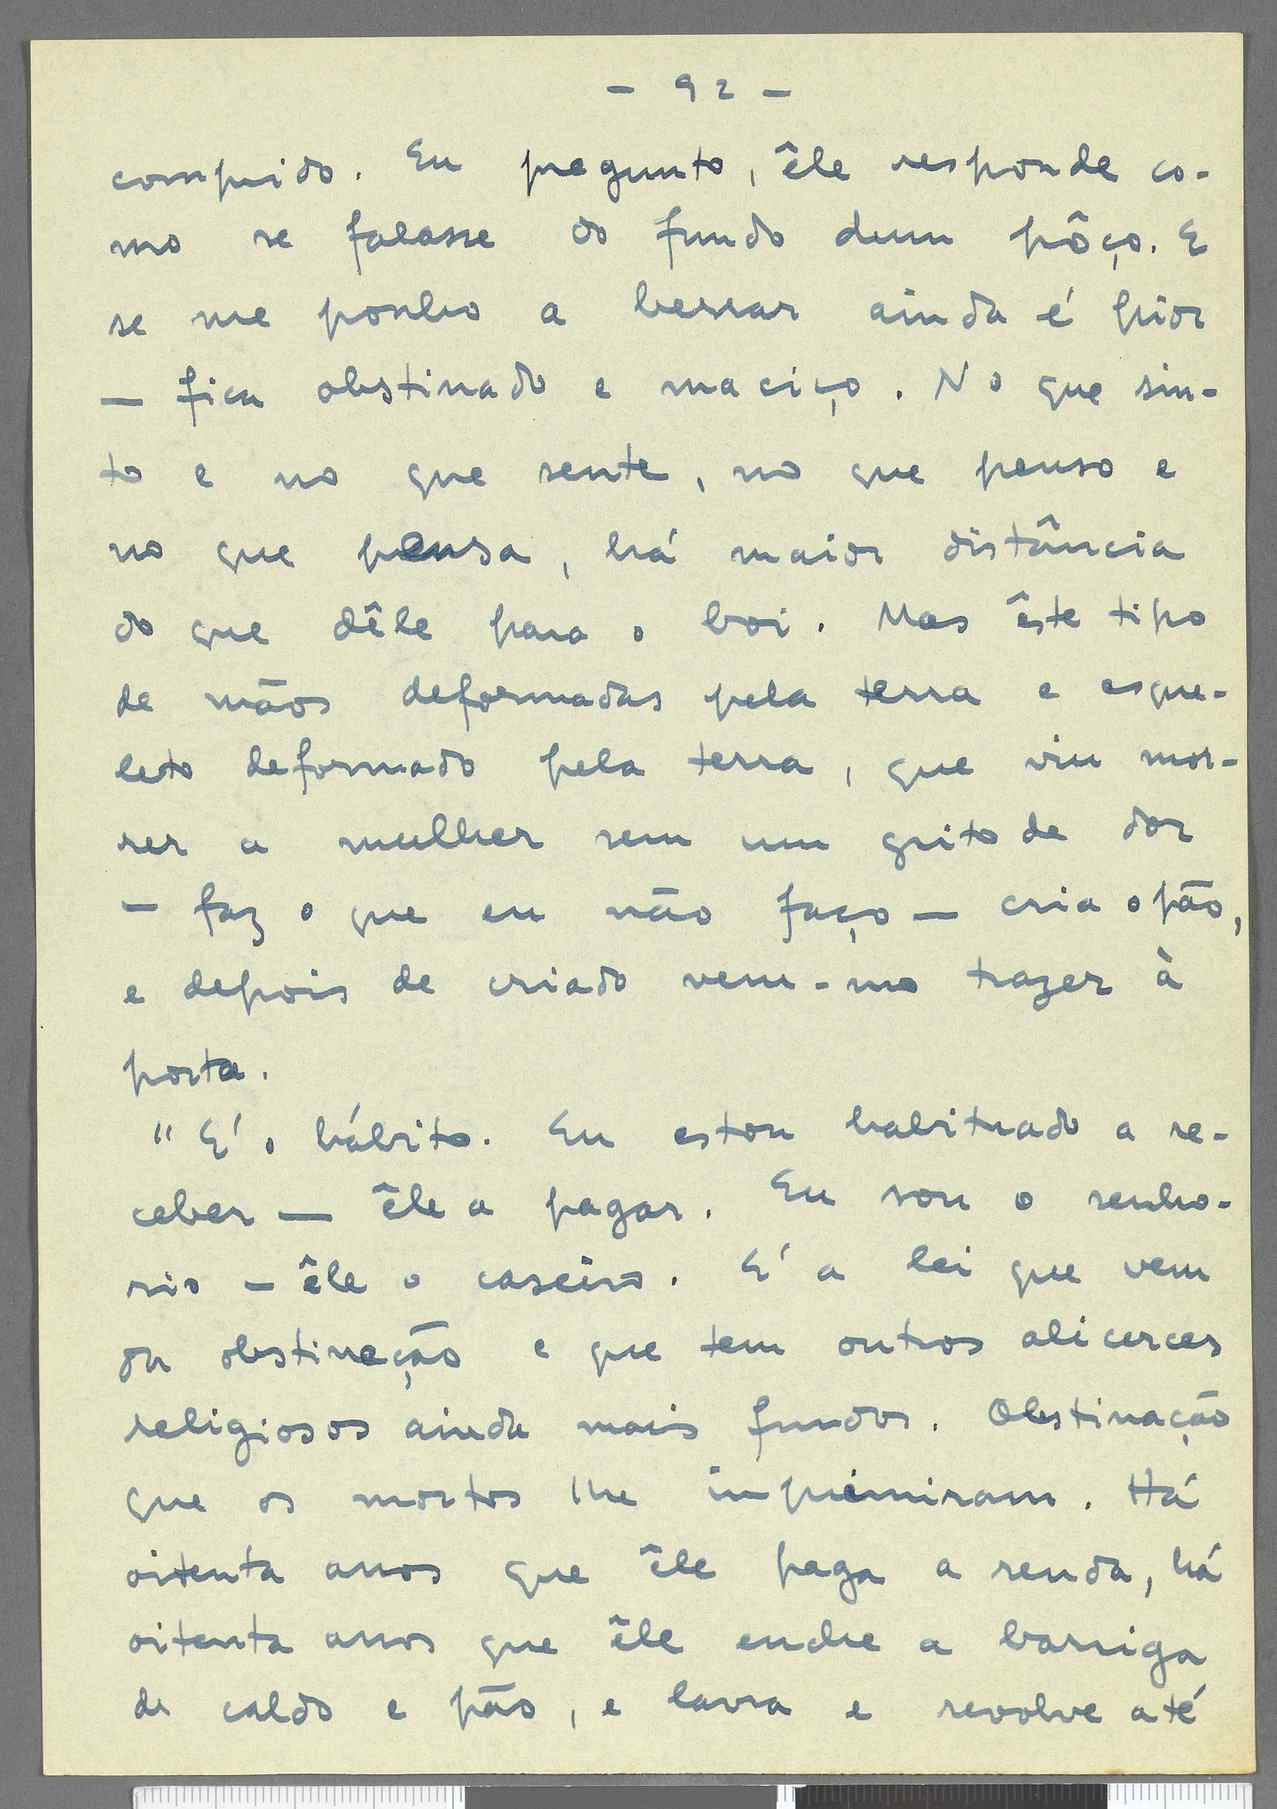 - 92 -
comprido. Eu pregunto, êle responde co-
mo se falasse do fundo dum pôço. E
se me ponho a berrar ainda é pior
— fica obstinado e maciço. No que sin-
to e no que sente, no que penso e
no que pensa, há maior distância
do que dêle para o boi. Mas êste tipo
de mãos deformadas pela terra e esque-
leto deformado pela terra, que viu mor-
rer a mulher sem um grito de dor
— faz o que eu não faço — cria o pão,
e depois de criado vem-mo trazer à
porta.
"É o hábito. Eu estou habituado a re-
ceber — êle a pagar. Eu sou o senho-
rio — êle o caseiro. É a lei que vem
da obstinação e que tem outros alicerces
religiosos ainda mais fundos. Obstinação
que os mortos lhe imprimiram. Há
oitenta anos que êle paga a renda, há
oitenta anos que êle enche a barriga
de caldo e pão, e lavra e revolve até